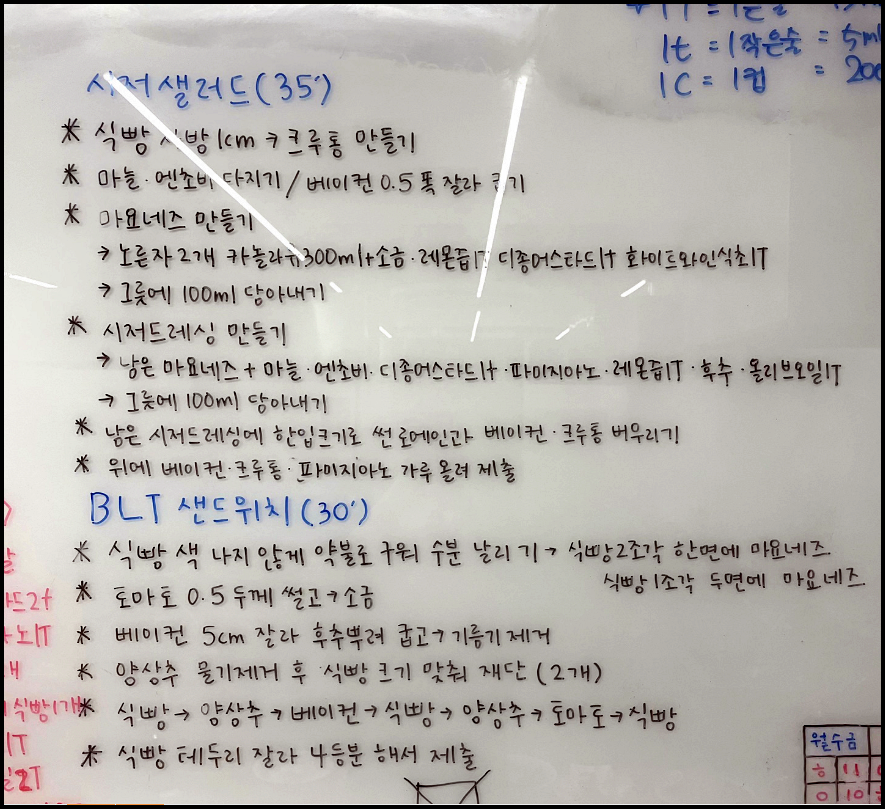 1t = 1작은술 = 5ml
1C = 1컵 = 200
시저샐러드(35')
* 식빵 사방 1cm → 크루통 만들기
* 마늘·엔초비 다지기 / 베이컨 0.5 폭 잘라 굽기
* 마요네즈 만들기
→ 노른자 2개 카놀라유 300ml+소금·레몬즙1T 디종머스타드1t 화이트와인식초1T
→ 그릇에 100ml 담아내기
* 시저드레싱 만들기
→ 남은 마요네즈 + 마늘·엔초비·디종머스타드1t·파마지아노·레몬즙1T·후추·올리브오일1T
→ 그릇에 100ml 담아내기
* 남은 시저드레싱에 한입크기로 썬 로메인과 베이컨·크루통 버무리기
* 위에 베이컨·크루통·파마지아노 가루 올려 제출
BLT 샌드위치(30')
* 식빵 색 나지 않게 약불로 구워 수분 날리기 → 식빵2조각 한면에 마요네즈
식빵1조각 두면에 마요네즈
* 토마토 0.5 두께 썰고→소금
* 베이컨 5cm 잘라 후추뿌려 굽고→기름기제거
* 양상추 물기제거 후 식빵 크기 맞춰 재단 (2개)
* 식빵→양상추→베이컨→식빵→양상추→토마토→식빵
* 식빵 테두리 잘라 4등분 해서 제출
월수금